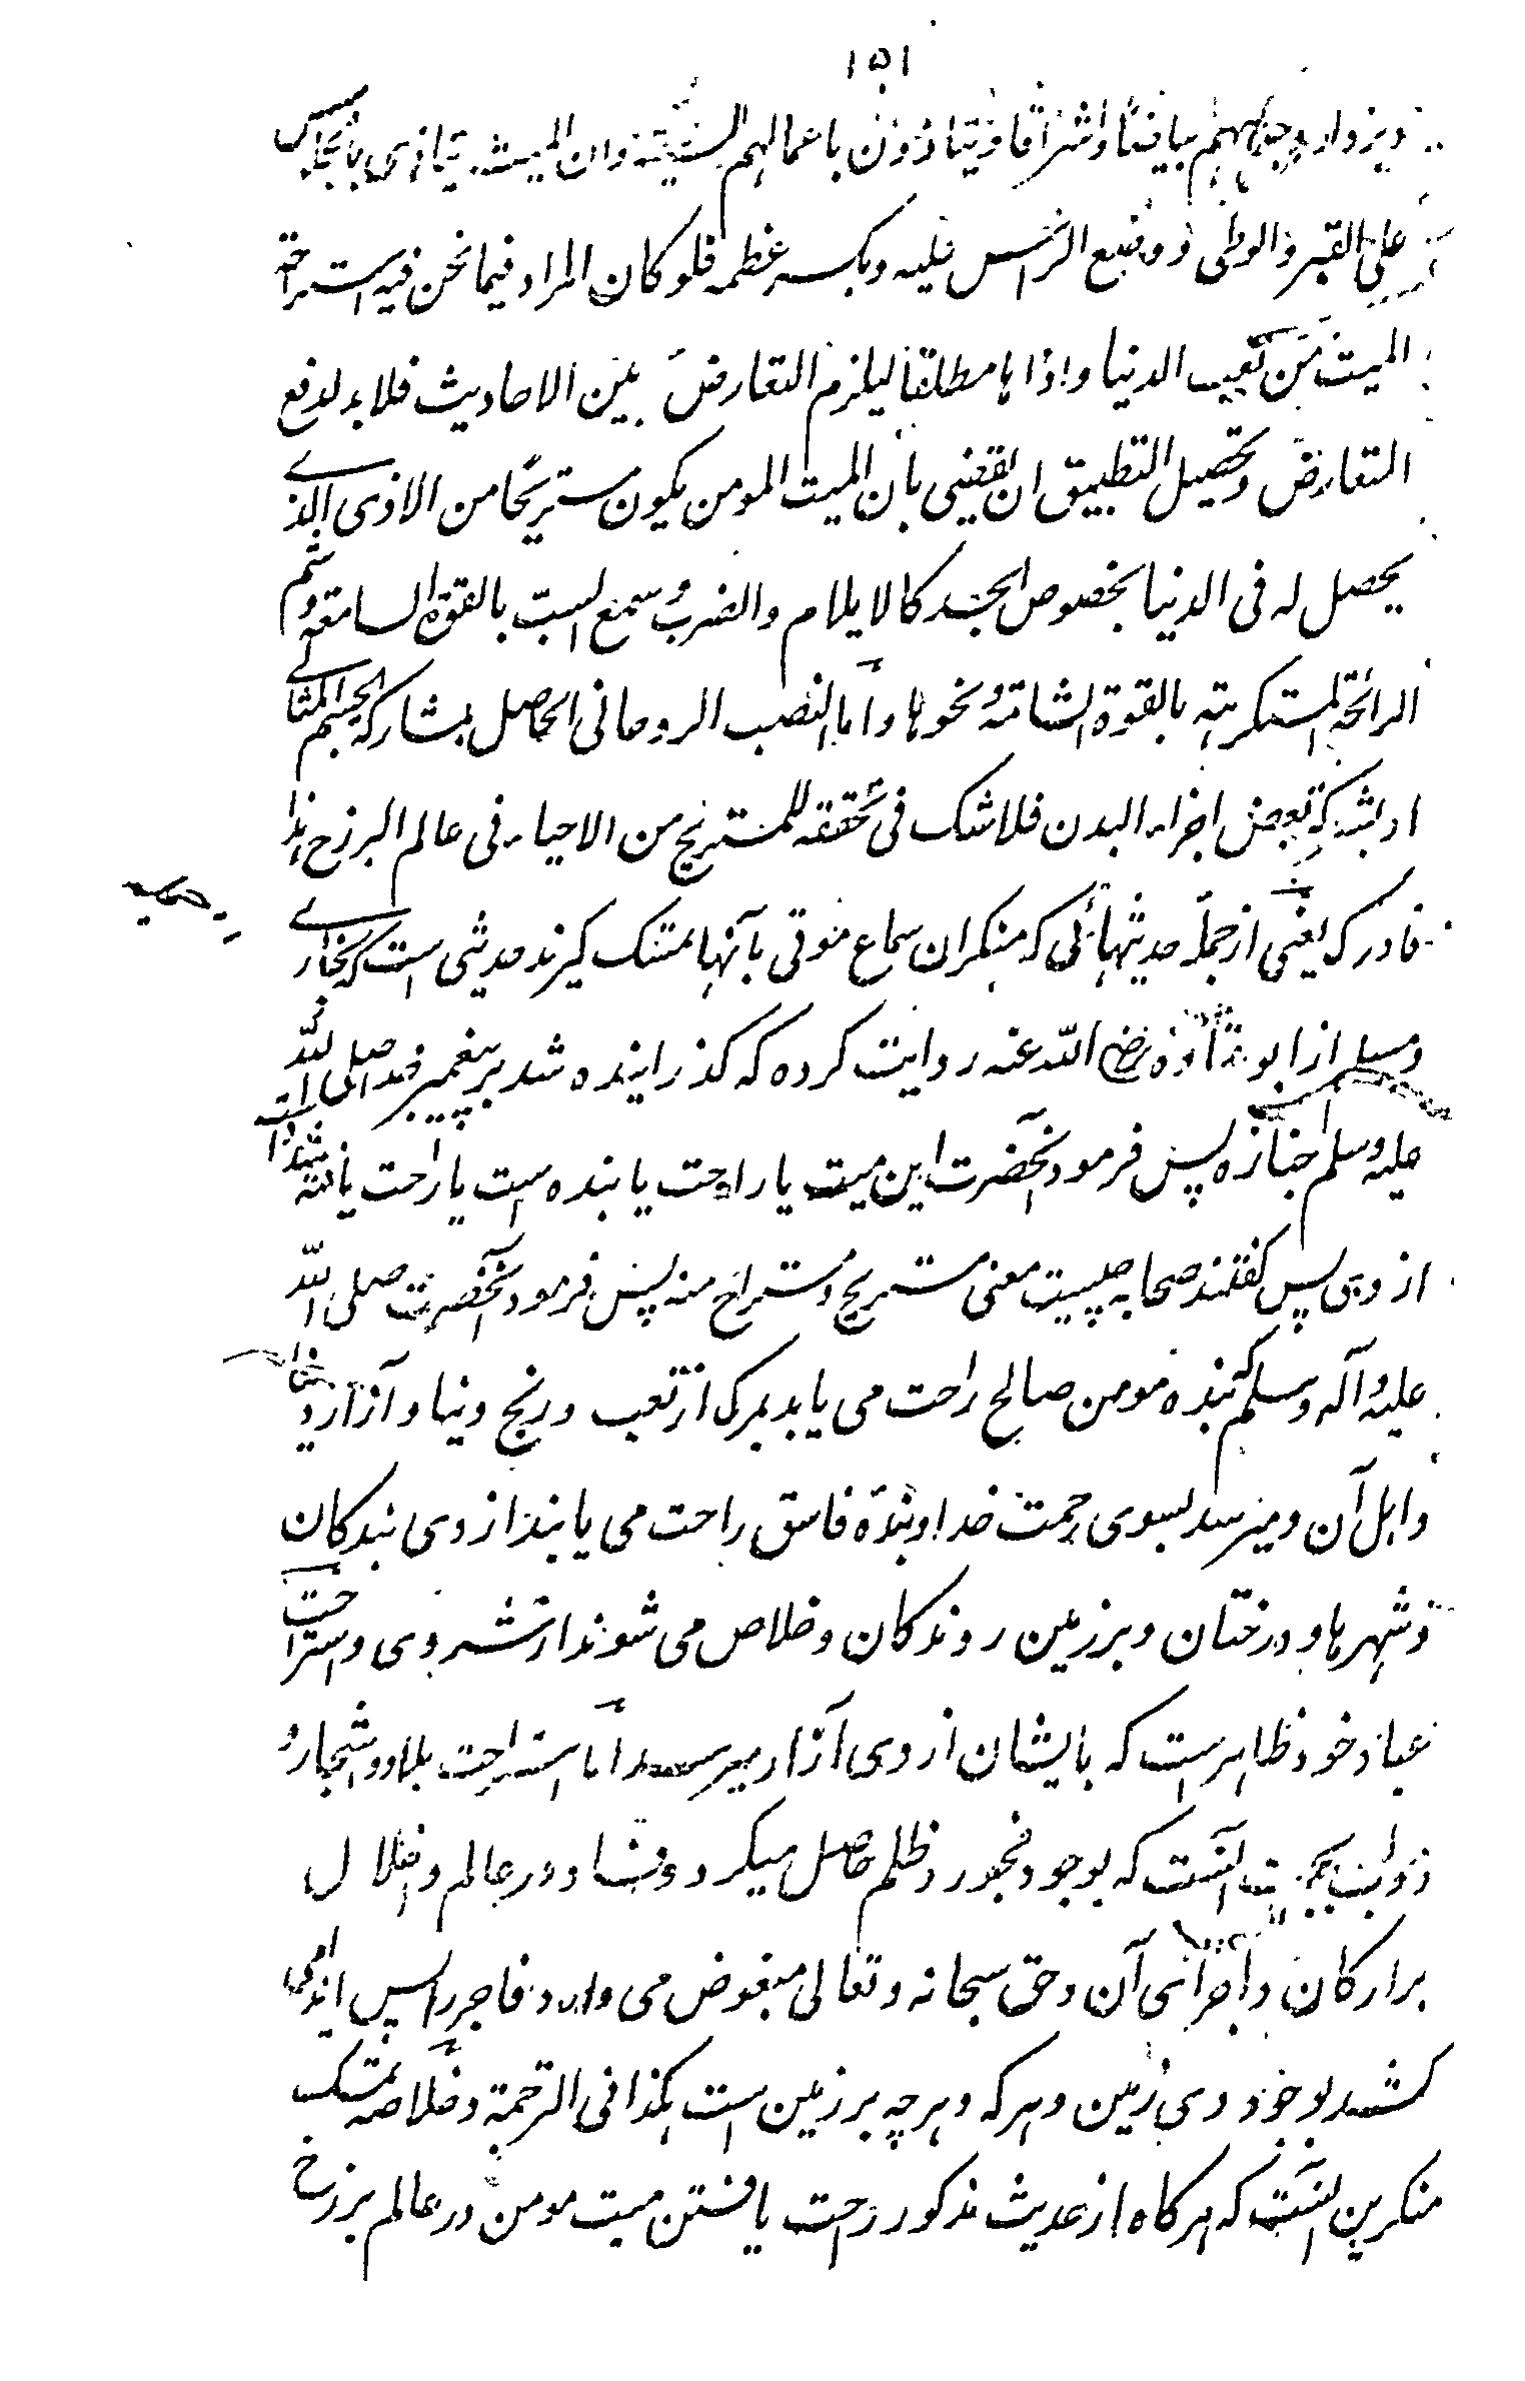 ١٥١
ويزداد وجوههم بياضا واشراقا ويتاذون باعمالهم السيئة وان الميت يتاذى بالجلوس
على القبر والوطى ووضع الراس عليه وبكسر عظمه فلو كان المراد فيما نحن فيه استراحة
الميت من تعب الدنيا واذاها مطلقا ليلزم التعارض بين الاحاديث فلا بد لدفع
التعارض وتحصيل التطبيق ان نقضى بان الميت المومن يكون مستريحا من الاذى الذے
يحصل له فى الدنيا بخصوص الجسد كالايلام والضرب وسمع السب بالقوة السامعة وشم
الرائحة المستكرهة بالقوة الشامة ونحوها واما النصب الروحانى الحاصل بمشاركة الجسم المثالے
او بشركة بعض اجزاء البدن فلا شك فى تحققه للمستريح من الاحياء فى عالم البرزخ هذا
فادرك يعنى از جمله حديثهائى كه منكران سماع موتى بآنها متمسك كيرند حديثى است كه بخارے
ومسلم از ابو قتاده رضى الله عنه روايت كرده كه كذرانيده شد بر پيغمبر خدا صلى الله
عليه وسلم جنازه پس فرمود آنحضرت اين ميت يا راحت يابنده است يا راحت يافته شده است
از وى پس كفتند صحابه چيست معنى مستريح ومستراح منه پس فرمود آنحضرت صلى الله
عليه وآله وسلم كه بنده مومن صالح راحت مى يابد بمرك از تعب ورنج دنيا وآزار دنيا
واهل آن وميرسد بسوى رحمت خدا وبنده فاسق راحت مى يابند از وى بندكان
وشهرها ودرختان وبر زمين روندكان وخلاص مى شوند از شر وى واستراحت
عباد خود ظاهر است كه بايشان از وى آزار ميرسد اما استراحت بلاد واشجار و
دواب بجهت آنست كه بوجود فجور وظلم حاصل ميكردد فساد در عالم واختلال
بر اركان واجزاى آن وحق سبحانه وتعالى مبغوض مى دارد فاجر را پس ايذا مى
كشد بوجود وى زمين وهر كه وهرچه بر زمين است هكذا فى الترجمة وخلاصه تمسك
منكرين آنست كه هركاه از حديث مذكور راحت يافتن ميت مومن در عالم برزخ